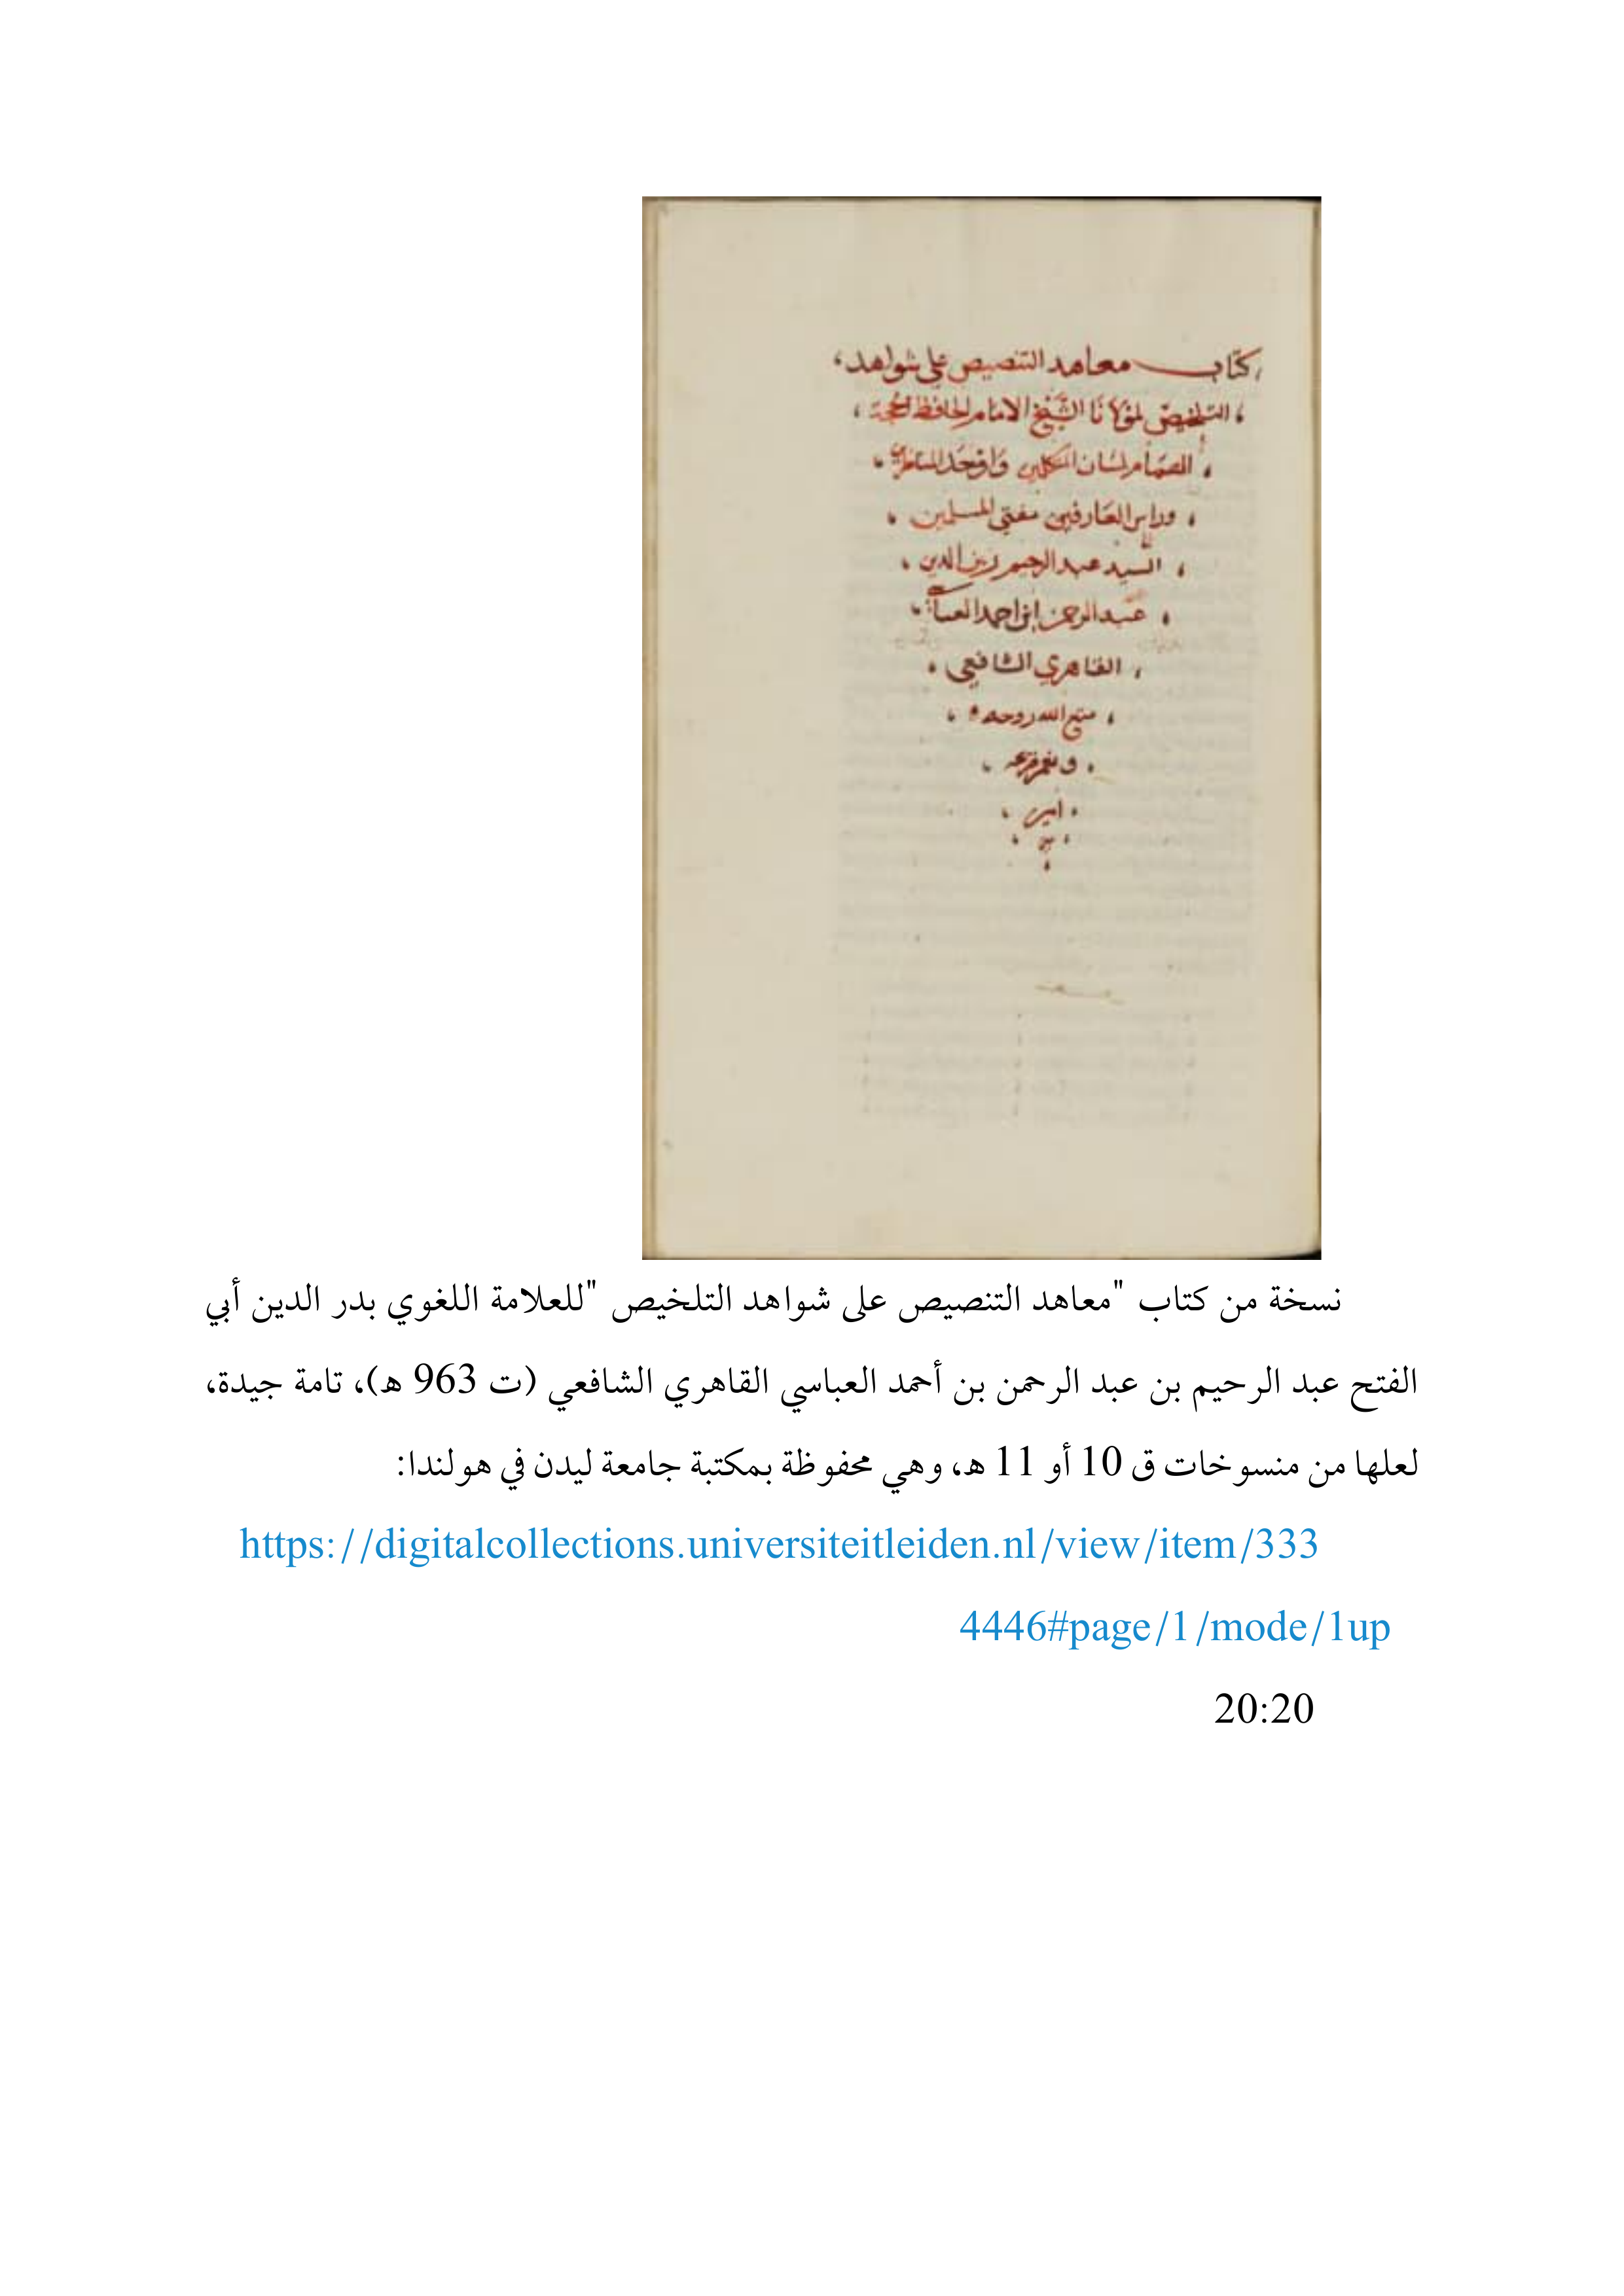 كتاب معاهد التنصيص على شواهد
التلخيص لمولانا الشيخ الامام الحافظ الحجة
لسان المتكلمين واوحد المناظرين
وراس العارفين مفتي المسلمين
السيد عبد الرحيم زين الدين
عبد الرحمن ابن احمد العباسي
القاهري الشافعي
روحه
امين
نسخة من كتاب "معاهد التنصيص على شواهد التلخيص "للعلامة اللغوي بدر الدين أبي
الفتح عبد الرحيم بن عبد الرحمن بن أحمد العباسي القاهري الشافعي (ت 963 ه)، تامة جيدة،
لعلها من منسوخات ق 10 أو 11 ه، وهي محفوظة بمكتبة جامعة ليدن في هولندا:
https://digitalcollections.universiteitleiden.nl/view/item/333
4446#page/1/mode/1up
20:20